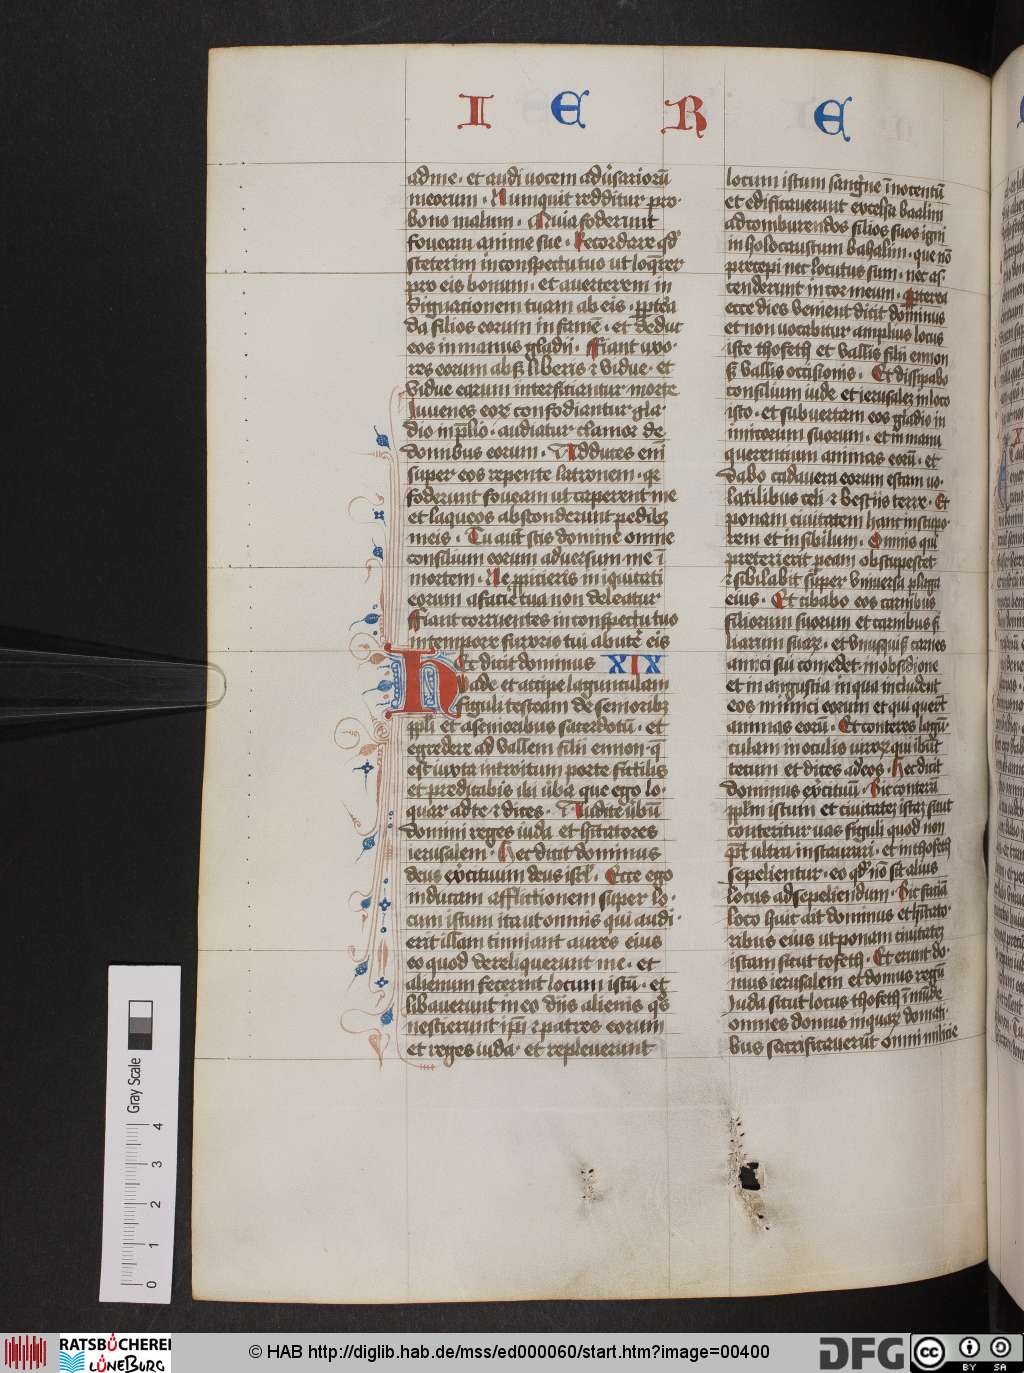 I E R E
ad me · et audi uocem adũsarioru̅
meorum · Numquit redditur pro ·
bono malum · Quia foderunt
foueam anime sue · Recordare qd̕
steterim in conspectu tuo ut loq̅rer
pro eis bonum · et auerterem in
dignacionem tuam ab eis · ꝓpt̕ea
da filios eorum in fame̅ · et deduc
eos in manus gladii · ffiant uxo ·
res eorum absꝫ liberis ⁊ vidue · et
vidue earum interficiantur morte
Iuuenes eorꝝ confodiantur gla ·
dio in p̅lio · audiatur clamor de
domibus eorum · Adduces eni̅
super eos repente latronem · qꝛ
foderunt foueam ut caperent me
et laqueos absconderunt pedibꝫ
meis · Tu aut̅ scis domine omne
consilium eorum aduersum me i̅
mortem · Ne ꝓpicieris iniquitati
eorum a facie tua non deleatur
ffiant corruentes in conspectu tuo
in tempore furoris tui abute̕ eis
Hec dicit dominus XIX
Vade et accipe lagunculam
figuli testeam de senioribꝫ
ppli̅ et a senioribus sacerdotu̅ · et
egredere ad vallem filii ennon · q̅
est iuxta introitum porte fictilis
et predicabis ibi u̕ba que ego lo ·
quar ad te ⁊ dices · Audite u̕bu̅
domini reges iuda et h̅itatores
ierusalem · Hec dicit dominus
deus ex̕cituum deus isrl̅ · Ecce ego
inducam afflictionem super lo ·
cum istum ita ut omnis qui audi ·
erit illam tinniant aures eius
eo quod dereliquerunt me · et
alienum fecerint locum istu̅ · et
libauerunt in eo diis alienis qo̅s
nescierunt ip̅i ⁊ patres eorum
et reges iuda · et repleuerunt
locum istum sangu̅ne i̅nocentu̅
et edificauerunt excelsa baalim
ad comburendos filios suos igni
in holocaustum bahalim · que no̅
precepi nec locutus sum · nec as ·
cenderunt in cor meum · Apterea
ecce dies venient dicit dominus
et non uocabitur amplius locus
iste thofeth et vallis filii ennon
sꝫ vallis occisionis · Et dissipabo
consilium iude et ierusalem in loco
isto · et subuertam eos gladio in
imicorum suorum · et in manu
querentium animas eoru̅ · et
dabo cadauera eorum escam uo ·
latilibus celi ⁊ bestiis terre · Et
ponam ciuitatem hanc in stupo ·
rem et in sibilum · Omnis qui
preterierit p̲ eam obstupescet
⁊ sibilabit super vniuersa plaga
eius · Et cibabo eos carnibus
filiorum suorum et carnibus fi ·
liarum suarꝝ · et vnusquisqꝫ carnes
amici sui comedet · in obsidione
et in angustia in qua includent
eos inimici eorum et qui queru̅t
animas eoru̅ · Et conteres lagu̅ ·
culam in oculis uirorꝝ qui ibu̅t
tecum et dices ad eos · Hec dicit
dominus ex̕cituu̅ · Sic conteru̅
ppl̅m istum et ciuitatem istam sicut
conteritur uas figuli quod non
po̅t ultra instaurari · et in thofeth
sepelientur · eo qd̕ no̅ sit alius
locus ad sepeliendum · Sic facia̅
loco huic ait dominus et h̅itato ·
ribus eius ut ponam ciuitatem
istam sicut tofeth · Et erunt do ·
mus ierusalem et domus regu̅
Iuda sicut locus thofeth i̅mu̅de
omnes domus in quarꝝ domati ·
bus sacrificaueru̅t omni milicie
Gray Scale
0 1 2 3 4
RATSBÜCHEREI
LÜNEBURG
© HAB http://diglib.hab.de/mss/ed000060/start.htm?image=00400
DFG
cc BY SA